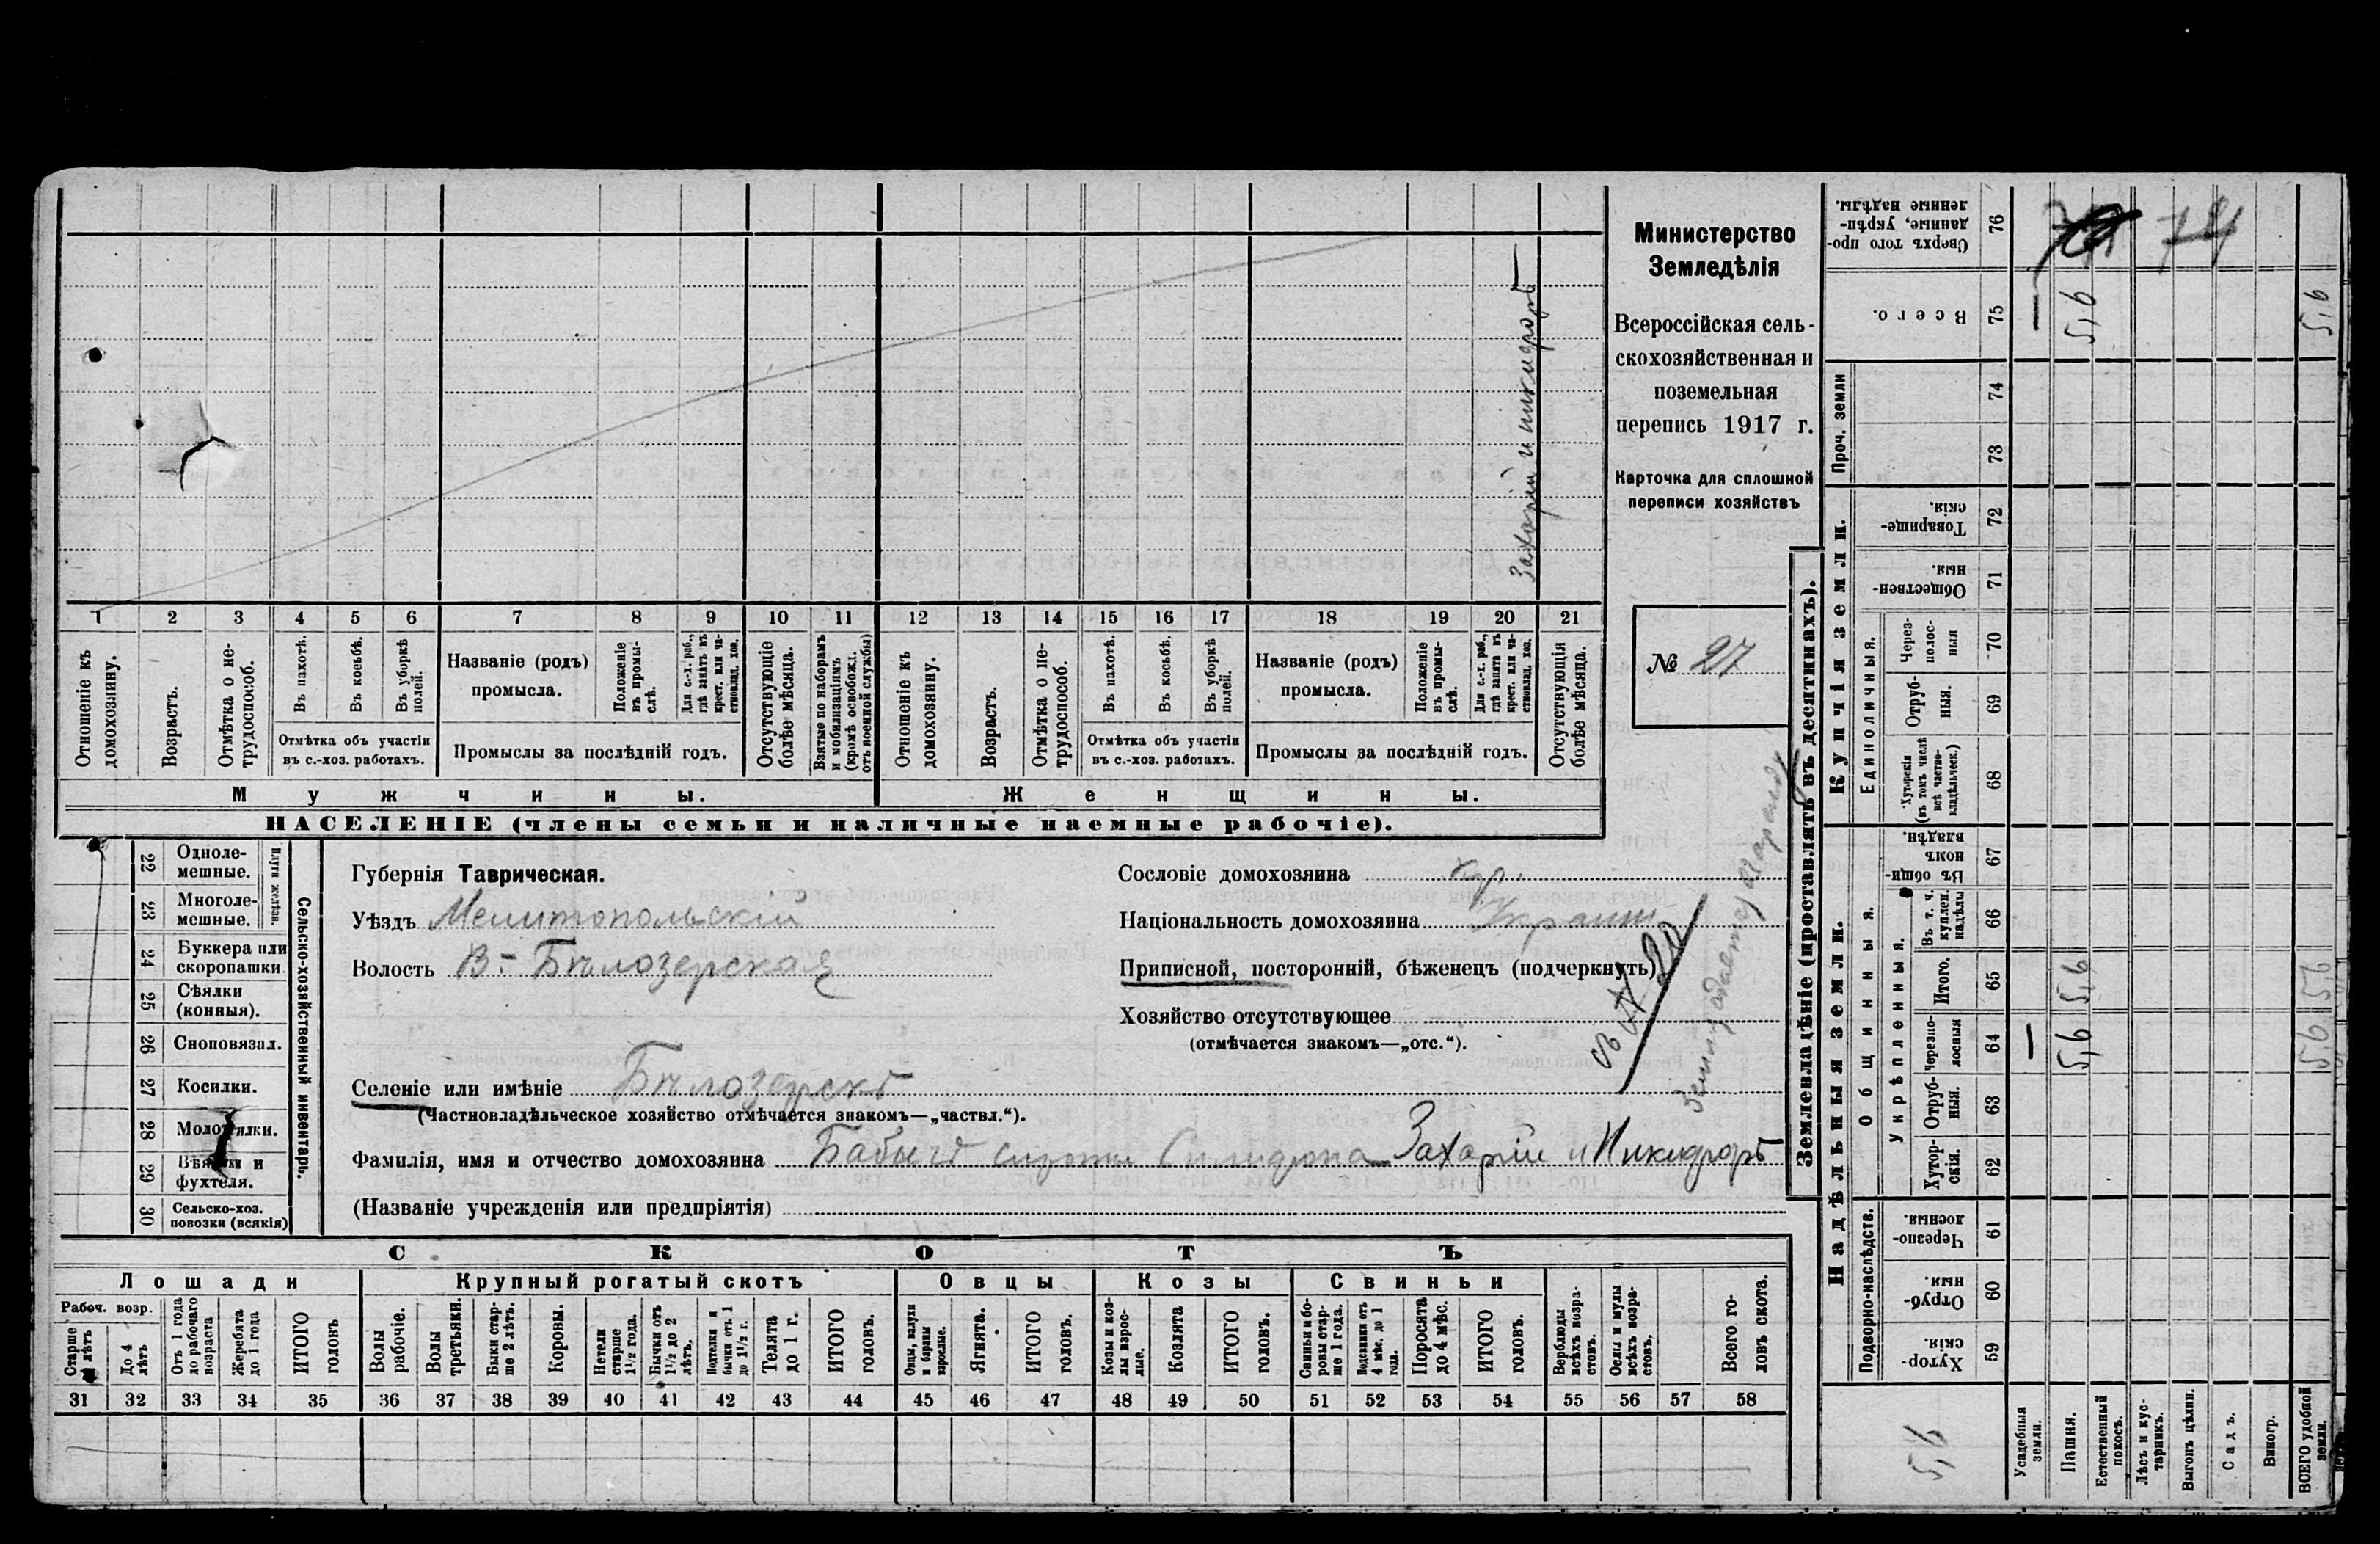 Захарій и Никифоръ
1 2 3 4 5 6 7 8 9 10 11 12 13 14 15 16 17 18 19 20 21
Отношеніе къ домохозяину.
Возрастъ.
Отмѣтка о не-
трудоспособ.
Въ пахотѣ.
Въ косьбѣ.
Въ уборкѣ
полей.
Отмѣтка объ участіи
въ с.-хоз. работахъ.
Названіе (родъ)
промысла.
Положеніе
въ промы-
слѣ.
Для с.-х. раб.,
гдѣ занятъ въ
крест. или ча-
стновлад. хоз.
Промыслы за послѣдній годъ.
Отсутствующіе
болѣе мѣсяца.
Взятые по наборамъ
и мобилизаціямъ
(кромѣ освобожд.
отъ военной службы)
Отношеніе къ
домохозяину.
Возрастъ.
Отмѣтка о не-
трудоспособ.
Въ пахотѣ.
Въ косьбѣ.
Въ уборкѣ
полей.
Отмѣтка объ участіи
въ с.-хоз. работахъ.
Названіе (родъ)
промысла.
Положеніе
въ промы-
слѣ.
Для с.-х. раб.,
гдѣ занята въ
крест. или ча-
стновлад. хоз.
Промыслы за послѣдній годъ.
Отсутствующія
болѣе мѣсяца.
Мужчины.
Женщины.
НАСЕЛЕНІЕ (члены семьи и наличные наемные рабочіе).
Министерство
Земледѣлія
Всероссійская сель-
скохозяйственная и
поземельная
перепись 1917 г.
Карточка для сплошной
переписи хозяйствъ
№ 27
22 Одноле-
мешные.
23 Многоле-
мешные.
Плуги желѣзн.
24 Буккера или
скоропашки
25 Сѣялки
(конныя).
26 Сноповязал.
27 Косилки.
28 Молотилки.
29 Вѣялки и
фухтеля.
30 Сельско-хоз.
повозки (всякія)
Сельско-хозяйственный инвентарь.
Губернія Таврическая.
Уѣздъ Мелитопольскій
Волость В-Бѣлозерская
Селеніе или имѣніе Бѣлозерскъ
(Частновладѣльческое хозяйство отмѣчается знакомъ—„частвл.“).
Фамилія, имя и отчество домохозяина Бабычъ сироты Спиридона Захарій и Никифоръ
(Названіе учрежденія или предпріятія)
Сословіе домохозяина кр.
Національность домохозяина Украин.
Приписной, посторонній, бѣженецъ (подчеркнуть)
Хозяйство отсутствующее
(отмѣчается знакомъ—„отс.“).
СКОТЪ
Лошади
Рабоч. возр.
Старше
лѣтъ
До 4
лѣтъ
Отъ 1 года
до рабочаго
возраста
Жеребята
до 1 года
ИТОГО
головъ
Крупный рогатый скотъ
Волы
рабочіе.
Волы
третьяки.
Быки стар-
ше 2 лѣтъ.
Коровы.
Нетели
старше
1½ года.
Бычки отъ
1½ до 2
лѣтъ.
Подтелки и
бычки отъ 1
до 1½ г.
Телята
до 1 г.
ИТОГО
головъ.
Овцы
Овцы, валухи
и бараны
взрослые.
Ягнята.
ИТОГО
головъ.
Козы
Козы и коз-
лы взрос-
лые.
Козлята
ИТОГО
головъ.
Свиньи
Свиньи и бо-
ровы стар-
ше 1 года.
Подсвинки отъ
4 мѣс. до 1
года.
Поросята
до 4 мѣс.
ИТОГО
головъ.
Верблюды
всѣхъ возра-
стовъ.
Ослы и мулы
всѣхъ возра-
стовъ.
Всего го-
ловъ скота.
31 32 33 34 35 36 37 38 39 40 41 42 43 44 45 46 47 48 49 50 51 52 53 54 55 56 57 58
Землевладѣніе (проставлять въ десятинахъ).
Сверхъ того про-
данные, укрѣп-
ленные надѣлы.
76
74
Всего.
75
—
5,6
5,6
Проч. земли
74
73
Купчія земли.
Товарище-
скія.
72
Обществен-
ныя.
71
Единоличныя.
Через-
полос-
ныя
70
Отруб-
ныя.
69
Хуторскія
(въ томъ числѣ
всѣ частно-
владѣльческ.)
68
Надѣльныя земли.
Общинныя.
Въ общи-
номъ
владѣн.
67
Укрѣпленныя.
Въ т. ч.
куплен.
надѣлы
66
Итого.
65
5,6
Черезпо-
лосныя
64
—
5,6
Отруб-
ныя.
63
Хутор-
скія.
62
Подворно-наслѣдств.
Черезпо-
лосныя.
61
Отруб-
ныя.
60
Хутор-
скія.
59
5,6
Усадебныя
земли.
Пашня.
Естественный
покосъ.
Лѣсъ и кус-
тарникъ.
Выгонъ цѣлин.
Садъ.
Виногр.
ВСЕГО удобной
земли.